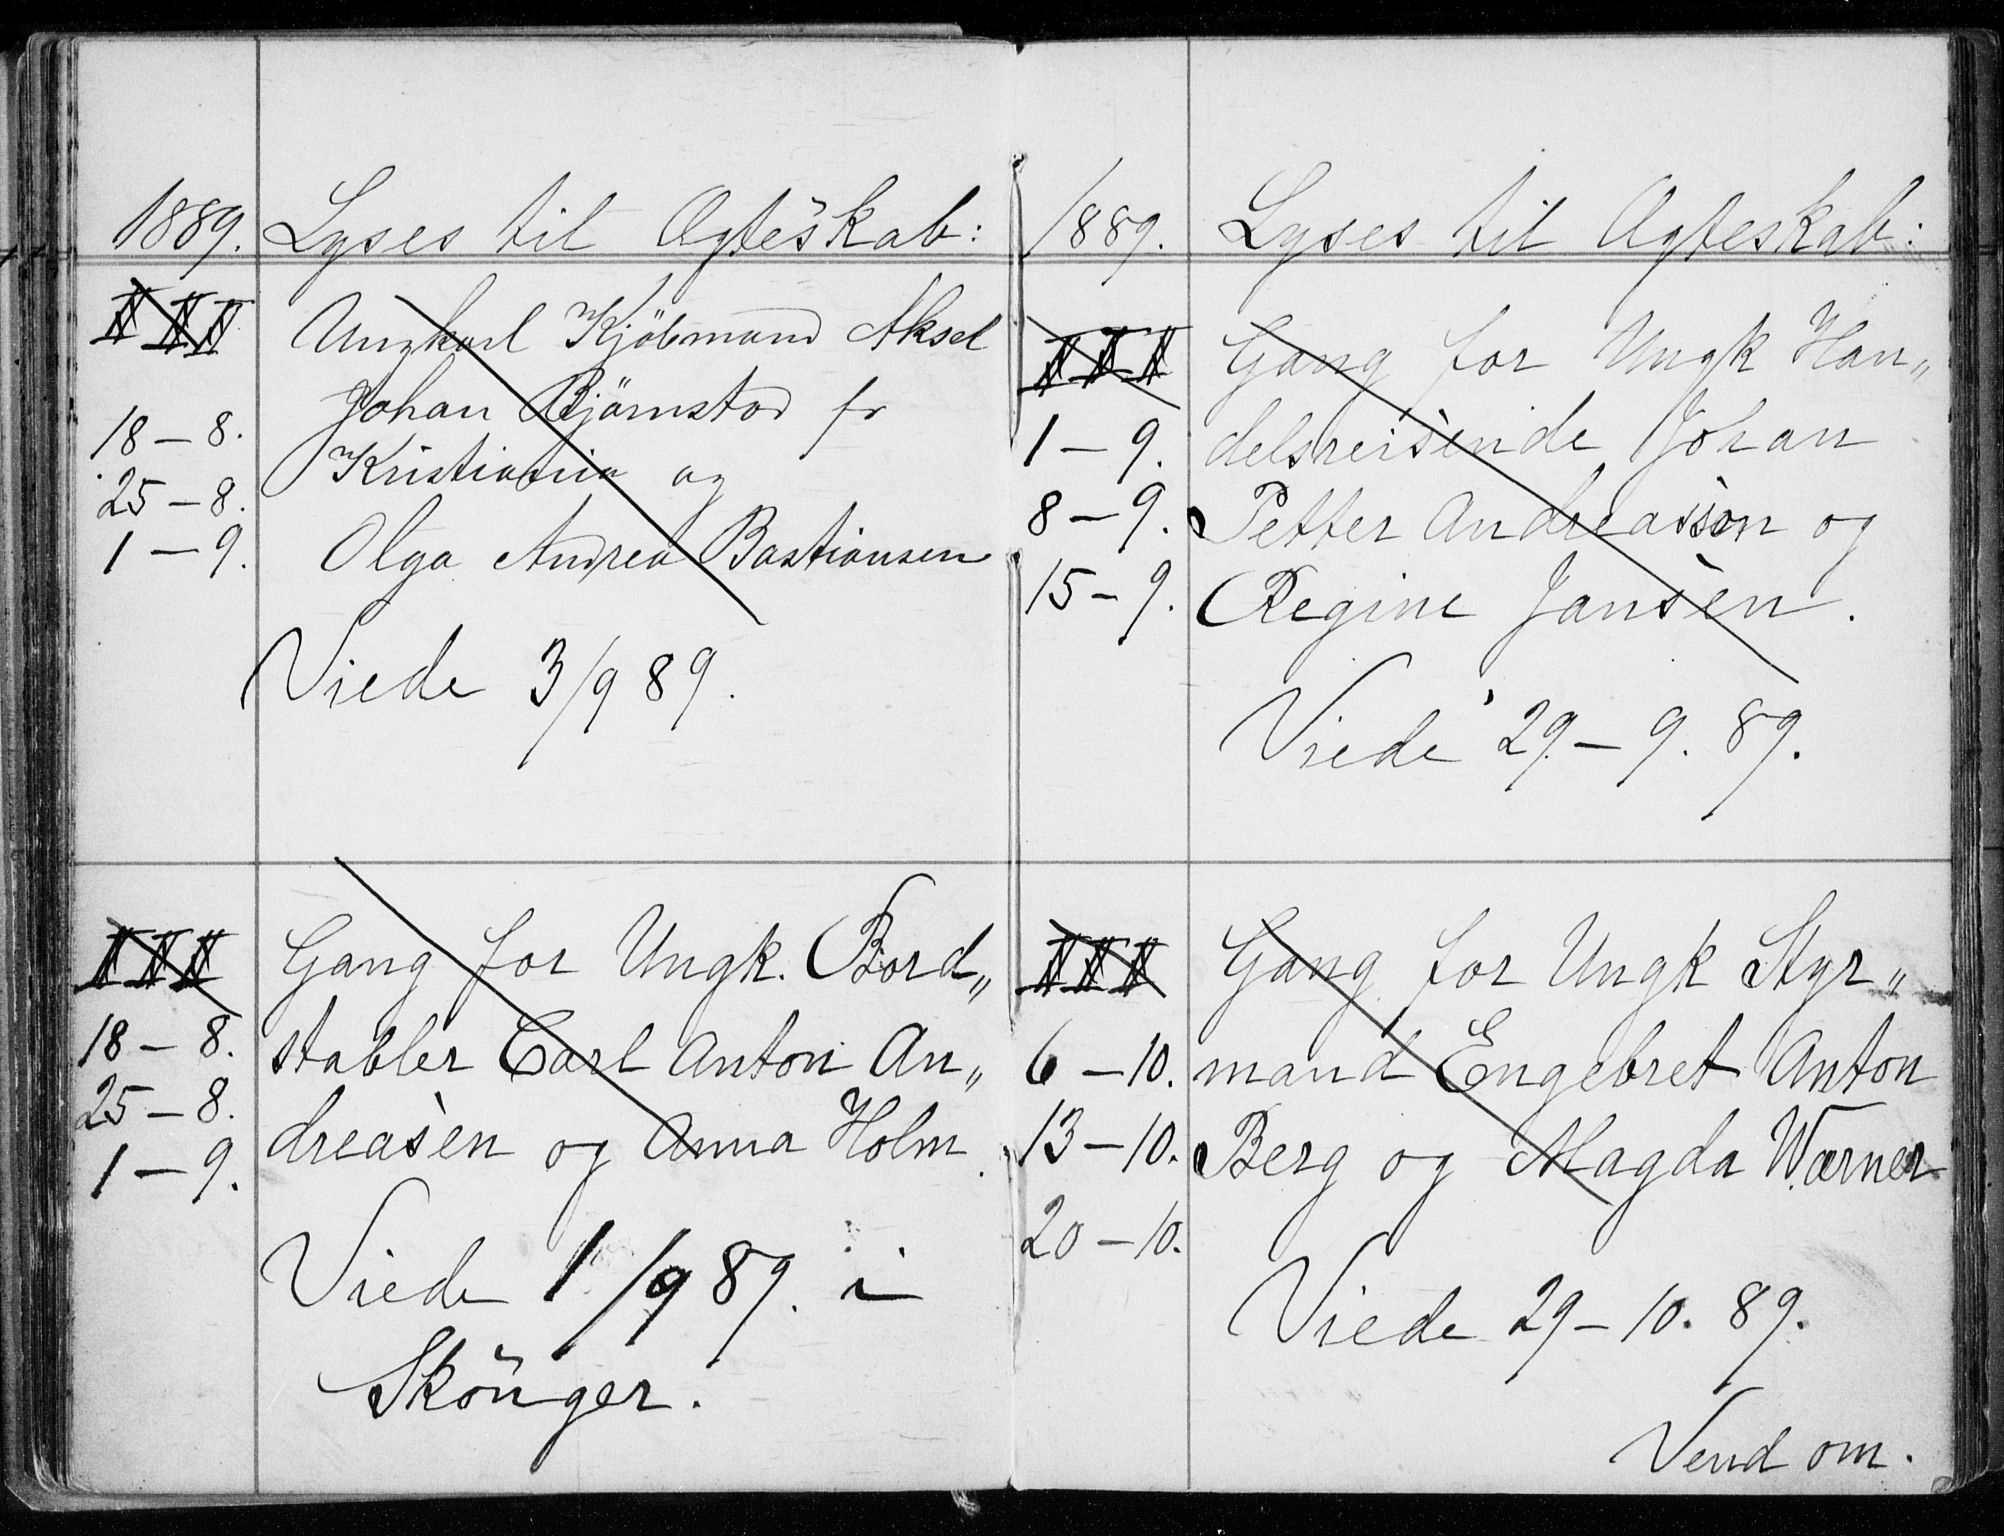 1889. Lyses til Ægteskab:
III Ungkarl Kjöbmand Aksel
Johan Björnstad fr
18 – 8. Kristiania og
25 – 8.
1 – 9. Olga Andrea Bastiansen
Viede 3/9 89.
III Gang for Ungk. Bord„
18 – 8. stabler Carl Anton An„
25 – 8. dreasen og Anna Holm.
1 – 9.
Viede 1/9 89. i
Skönger.
1889. Lyses til Ægteskab:
III Gang for Ungk Han„
1 – 9. delsreisende Johan
8 – 9. Petter Andreasson og
15 – 9. Regine Jansen.
Viede 29. – 9. 89.
III Gang for Ungk Styr„
6 – 10. mand Engebret Anton
13 – 10. Berg og Magda Wærner
20 – 10.
Viede 29 – 10. 89.
Vend om.